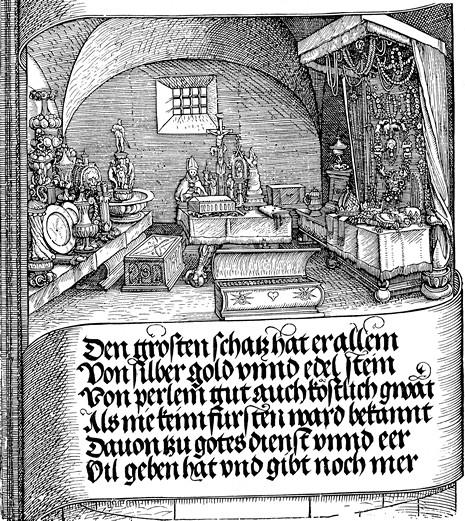 Den grosten schatz hat er allein
Von silber gold vnnd edel stein
Von perlein gut auch kostlich gwat
Als nie keim fursten ward bekannt
Dauon tzu gotes dienst vnnd eer
Vil geben hat vnd gibt noch mer